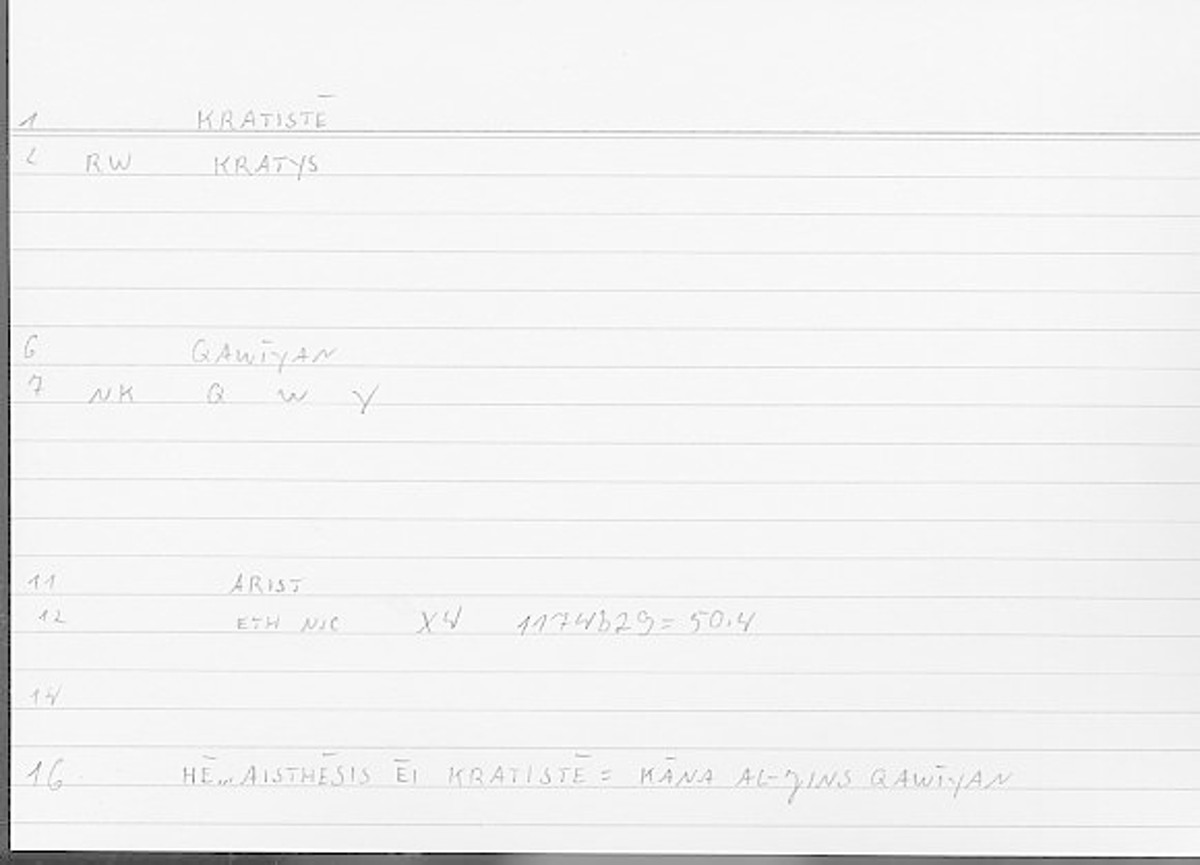 1 KRATISTĒ
2 RW KRATYS
6 QAWĪYAN
7 NK Q W Y
11 ARIST
12 ETH NIC X4 1174b29=50.4
14
16 HĒ... AISTHĒSIS ĒI KRATISTĒ = KĀNA AL-JINS QAWĪYAN